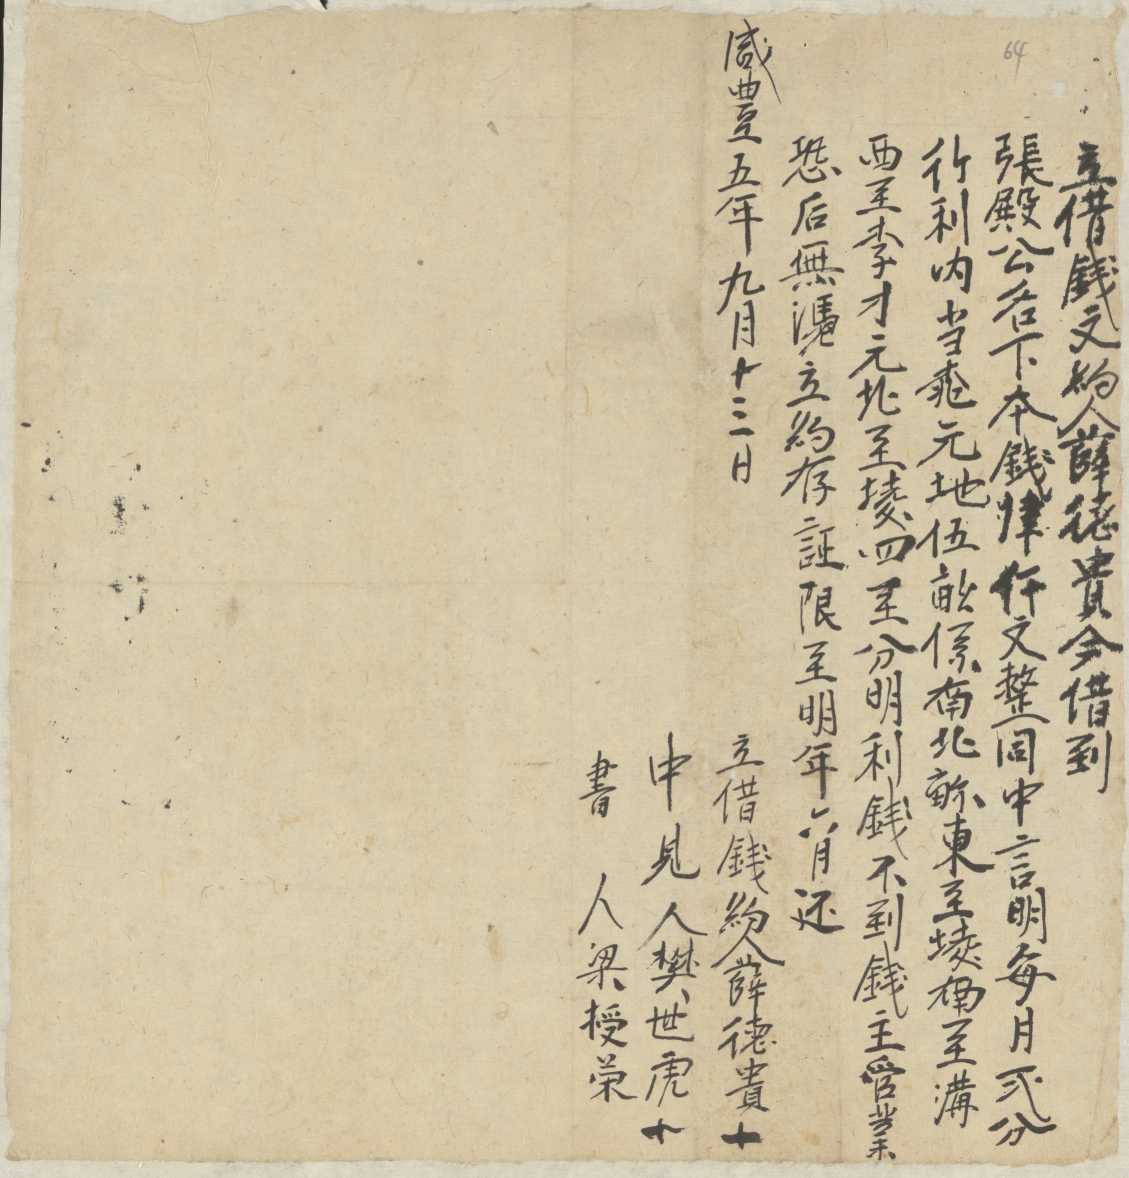 64
立借錢文約人薛德貴今借到
張殿公名下本錢肆仟文整同中言明每月弍分
行利内当窊元地伍畝係南北畛東至堎南至溝
西至李才元北至堎四至分明利錢不到錢主管業
恐后無憑立約存証限至明年六月还
咸豐五年九月十三日
立借錢約人薛德貴十
中見人樊世虎十
書人梁授荣